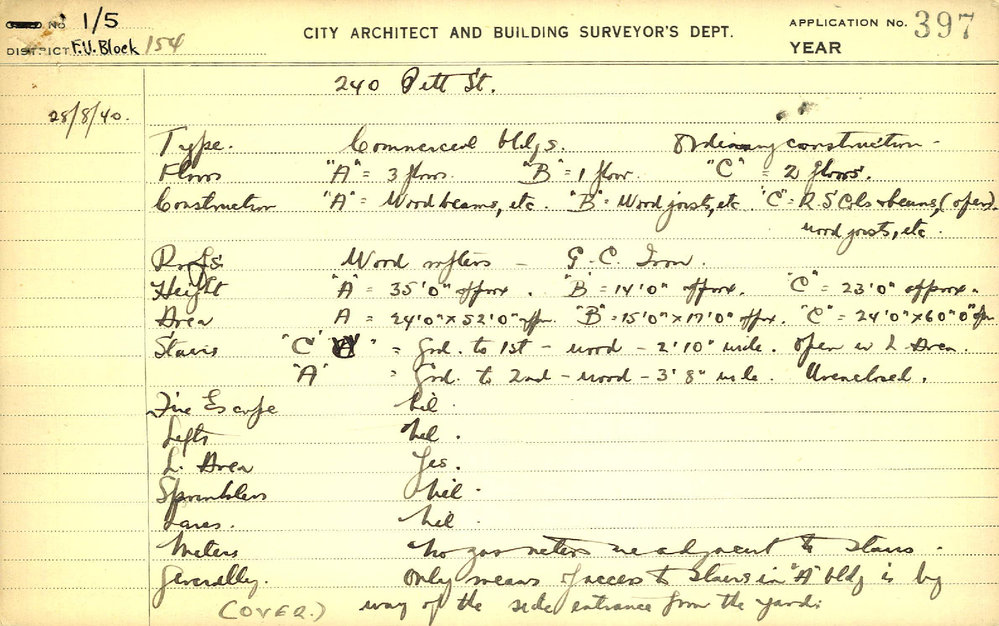 No 1/5
CITY ARCHITECT AND BUILDING SURVEYOR'S DEPT.
APPLICATION No. 397
DISTRICT F.U. Block 154
YEAR
240 Pitt St.
28/8/40.
Type. Commercial bldgs. Ordinary construction -
Floors "A" = 3 floors. "B" = 1 floor. "C" = 2 floors.
Construction "A" = Wood beams, etc. "B" = Wood joists, etc. "C" = R.S. Cols & beams, (open).
wood joists, etc.
Roofs Wood rafters - G.C. Iron.
Height "A" = 35'0" approx. "B" = 14'0" approx. "C" = 23'0" approx.
Area A = 24'0" x 52'0" apx. "B" = 15'0" x 17'0" apx. "C" = 24'0" x 60'0" apx.
Stairs "C" = Grd. to 1st - wood - 2'10" wide. open in L. Area.
"A" = Grd. to 2nd - wood - 3'8" wide. Unenclosed.
Fire Escape Nil.
Lifts Nil.
L. Area Yes.
Sprinklers Nil.
Nil.
Meters No gas meters are adjacent to stairs.
Generally. Only means of access to stairs in "A" bldg is by
(OVER.) way of the side entrance from the yard: